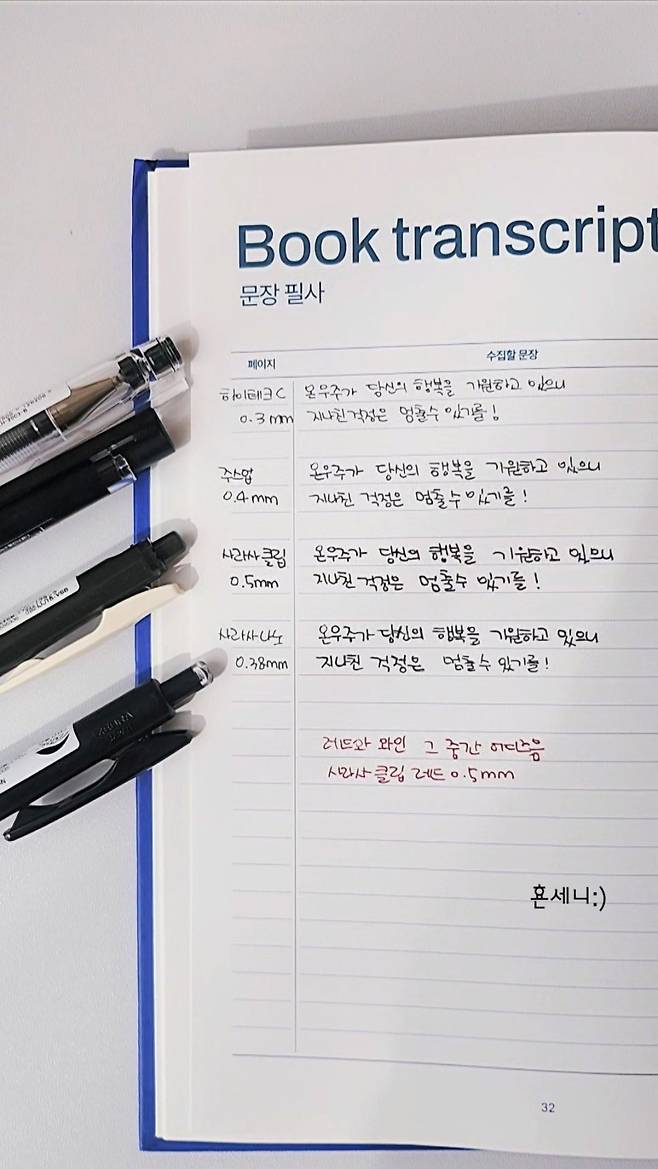 Book transcript
문장 필사
페이지 수집할 문장
하이테크C 온우주가 당신의 행복을 기원하고 있으니
0.3mm 지나친 걱정은 멈출수 있기를!
주스업 온우주가 당신의 행복을 기원하고 있으니
0.4mm 지나친 걱정은 멈출수 있기를!
사라사클립 온우주가 당신의 행복을 기원하고 있으니
0.5mm 지나친 걱정은 멈출수 있기를!
사라사나노 온우주가 당신의 행복을 기원하고 있으니
0.38mm 지나친 걱정은 멈출수 있기를!
레드와 와인 그 중간 어디즈음
사라사 클립 레드 0.5mm
횬세니:)
32
ZEBRA